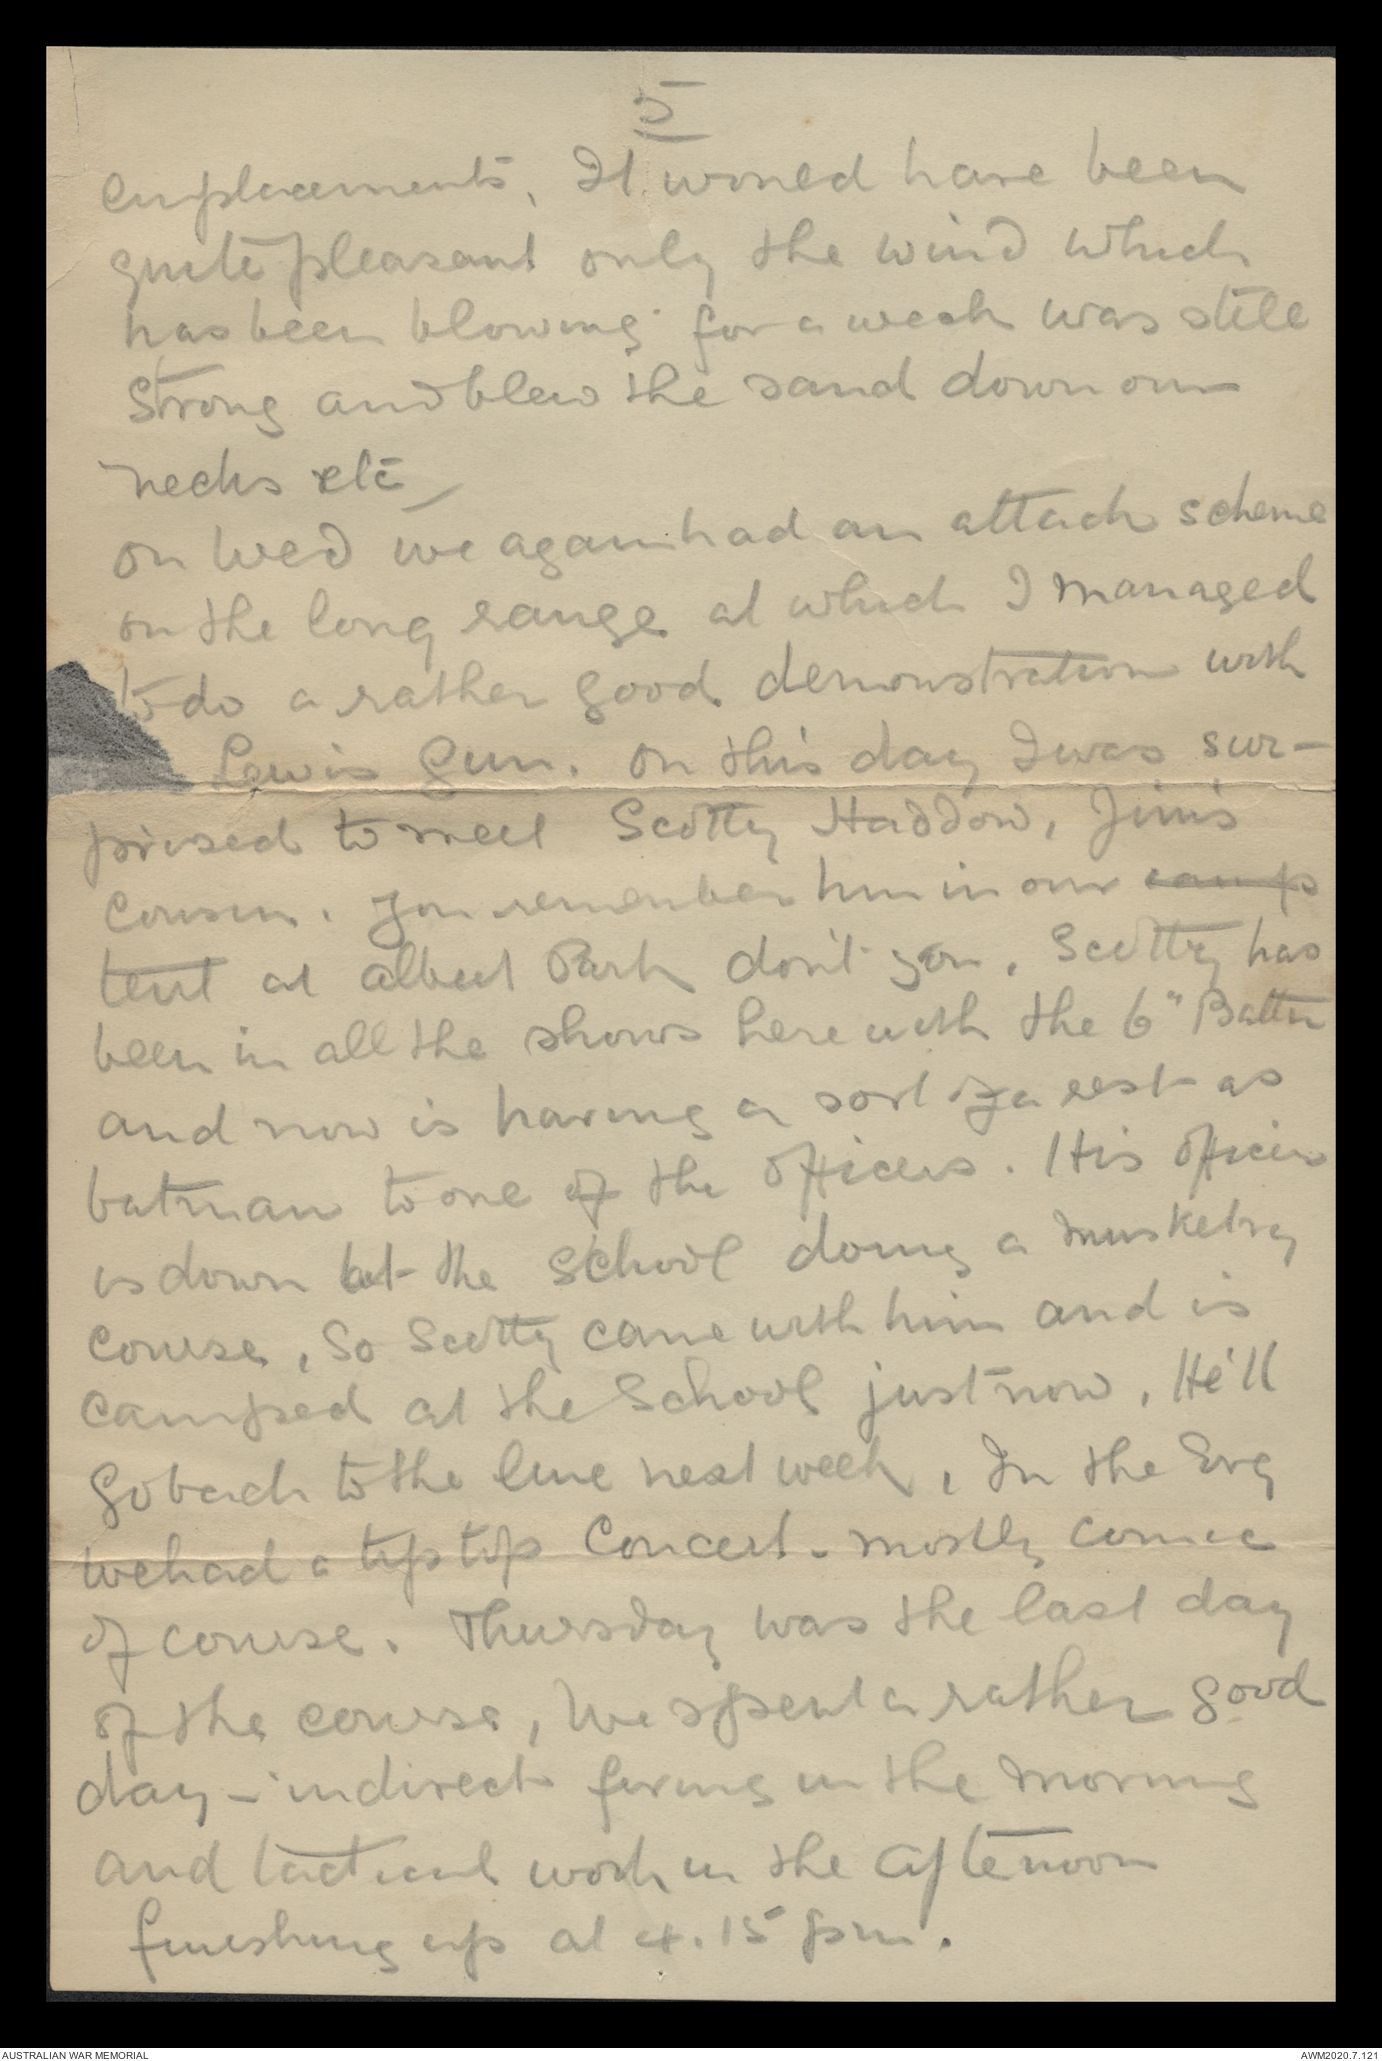 5
emplacements. It would have been
quite pleasant only the wind which
has been blowing for a week was still
strong and blew the sand down our
necks etc
On Wed we again had an attack scheme
on the long range at which I managed
to do a rather good demonstration with
Lewis Gun. On this day I was sur-
prised to meet Scotty Haddow, Jim's
cousin. You remember him in our camp
tent at Albert Park don't you. Scotty has
been in all the shows here with the 6" Battn
and now is having a sort of a rest as
batman to one of the officers. His officer
is down at the School doing a musketry
course, so Scotty came with him and is
camped at the School just now. He'll
go back to the line next week. In the Evg
we had a tip top Concert - mostly comic
of course. Thursday was the last day
of the course, We spent a rather good
day - indirect firing in the morning
and tactical work in the afternoon
finishing up at 4.15 pm.
AUSTRALIAN WAR MEMORIAL
AWM2020.7.121